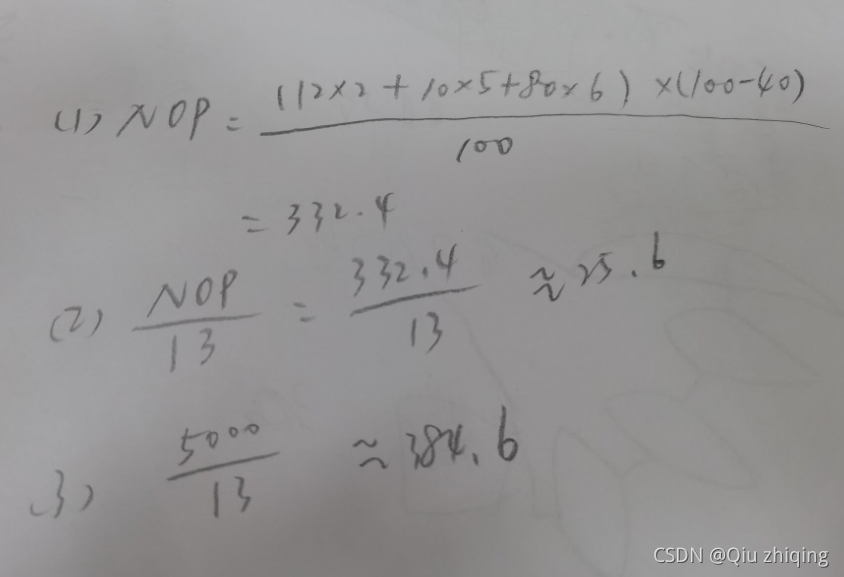 (1) NOP = (12×2 + 10×5+80×6) ×(100-40)
100
= 332.4
(2) NOP/13 = 332.4/13 ≈ 25.6
(3) 5000/13 ≈ 384.6
CSDN @Qiu zhiqing